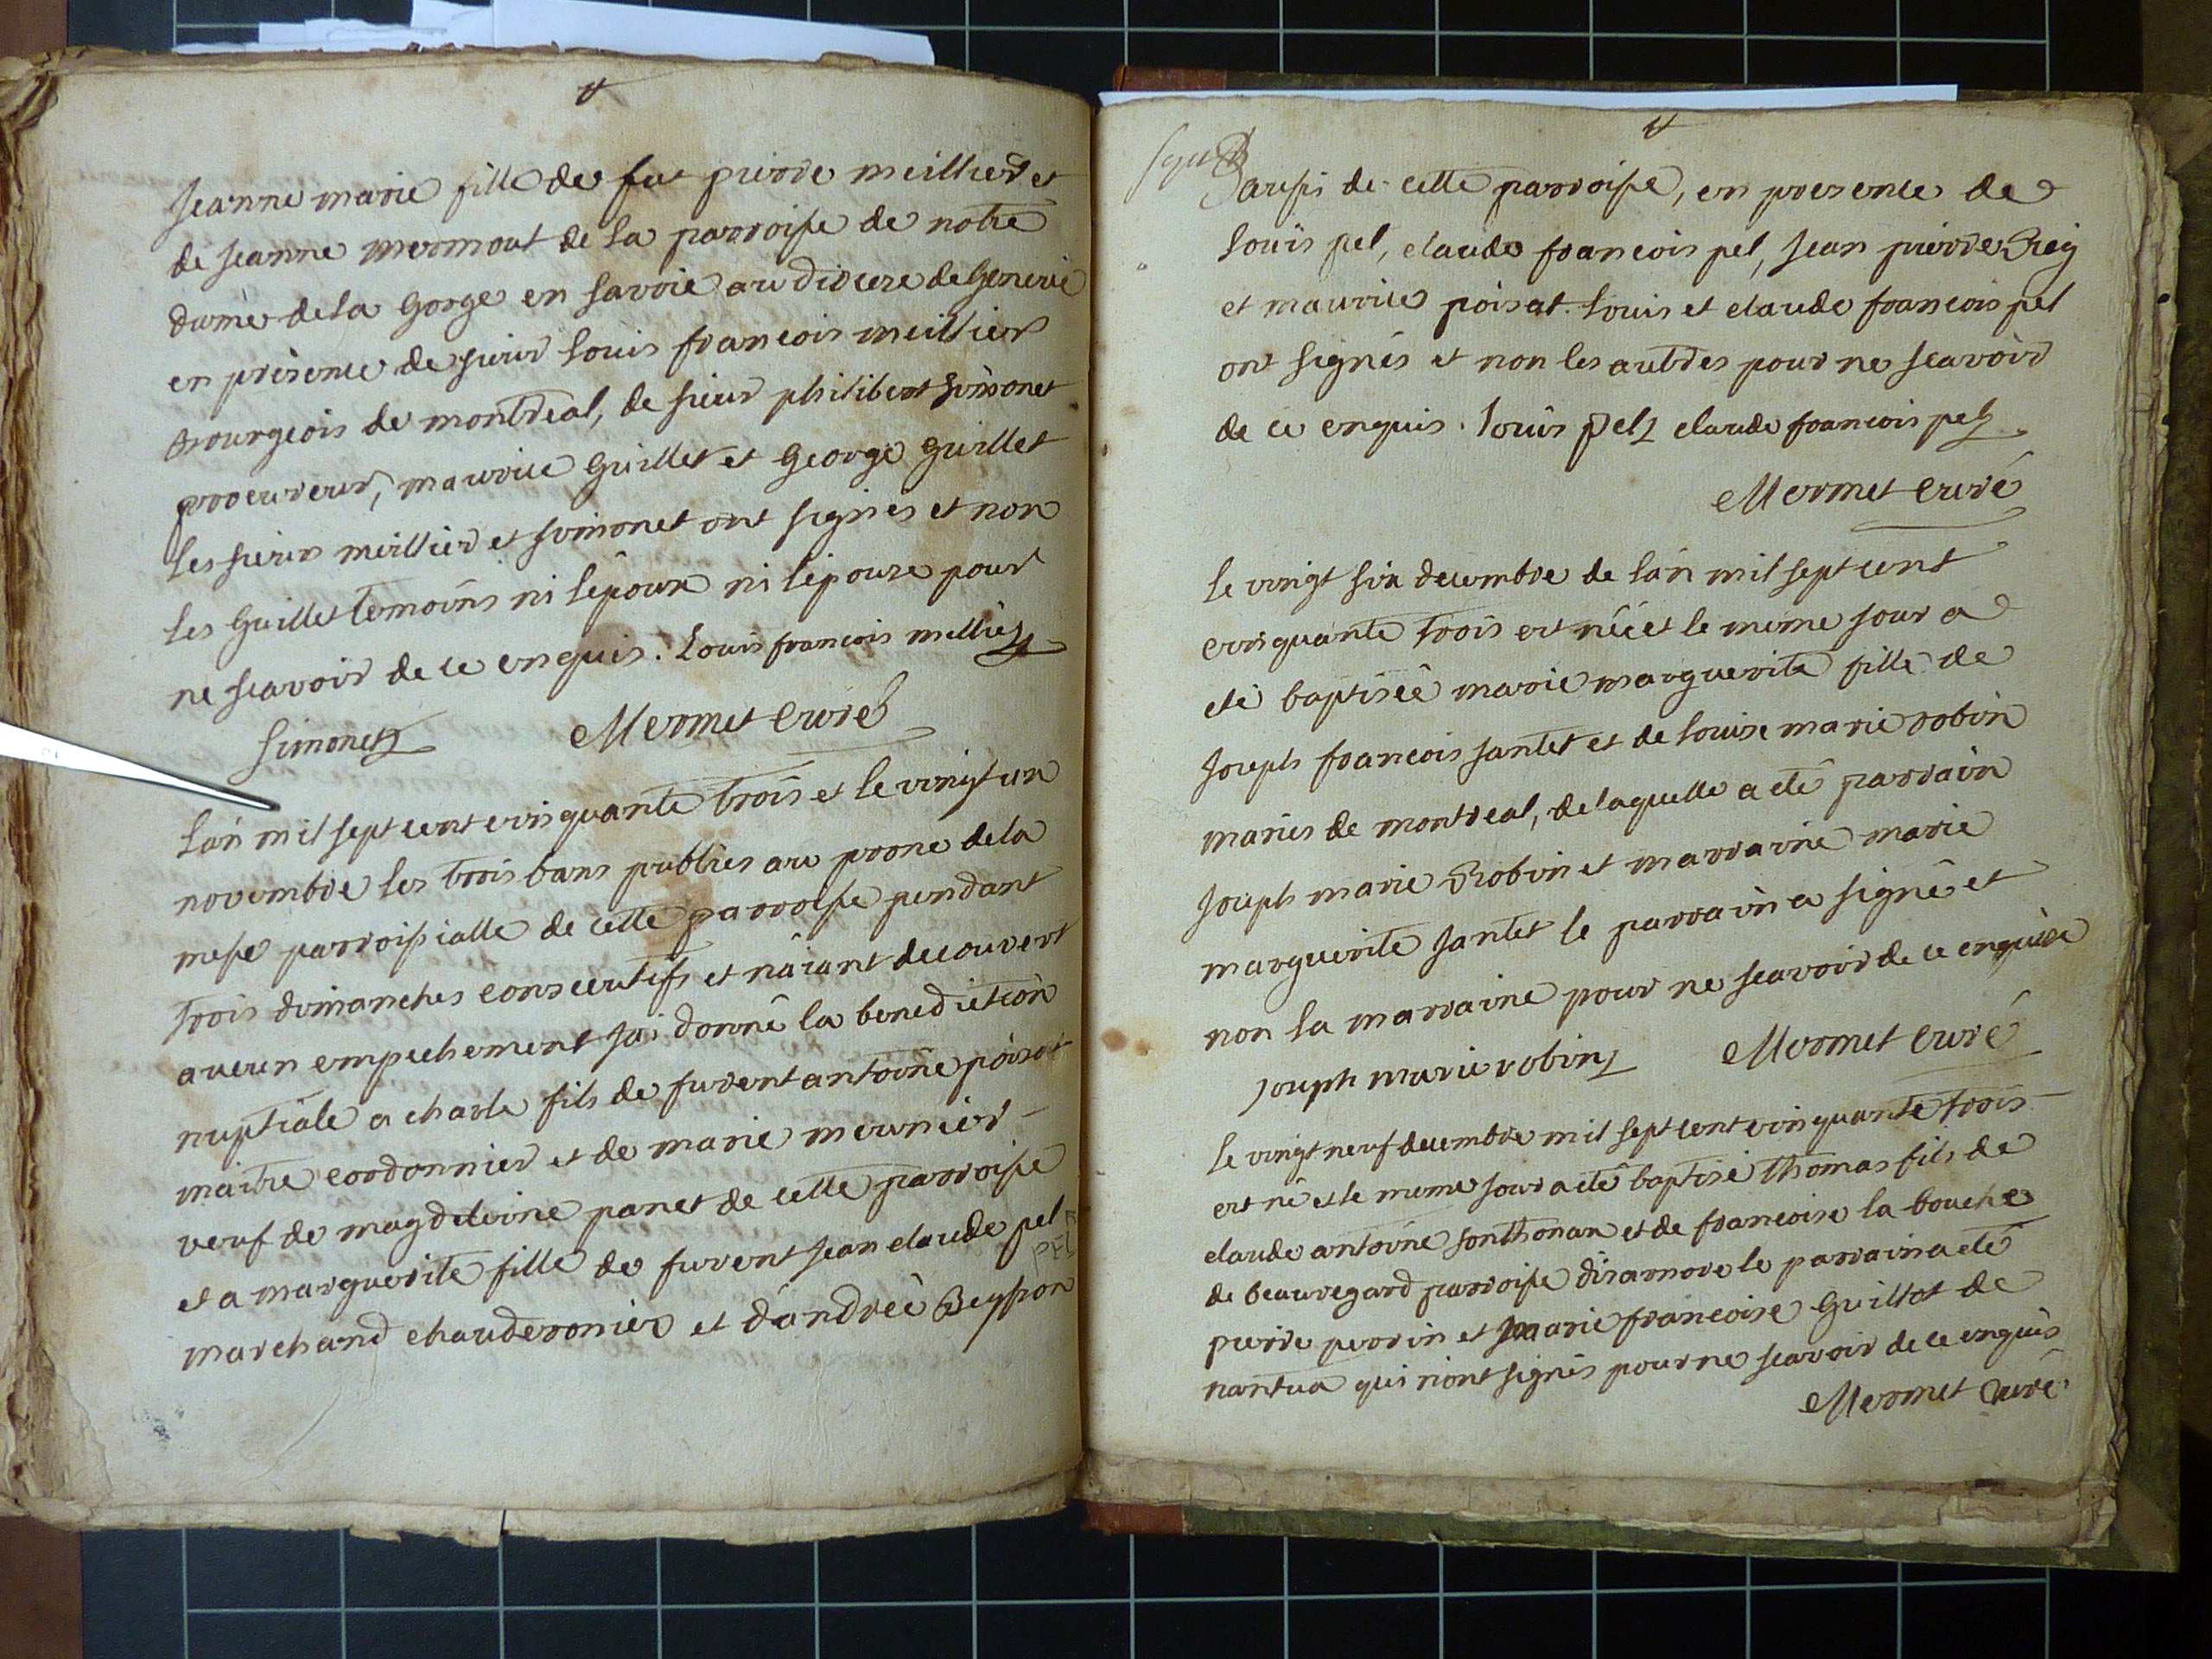 Jeanne marie fille de fut pierre meillier et
de jeanne mermout de la parroisse de notre
dame de la Gorge en savoie au diocese de Geneve
en présence de sieur Louis francois meillier
Bourgeois de montreal, de sieur philibert simonet
procureur, maurice Guillet et George Guillet
les sieurs meillier et simonet ont signés et non
les Guillet temoins ni lépoux ni lépouse pour
ne scavoir de ce enquis. Louis francois mellier
simonet Mermet Curé
Lán mil sept cent cinquante trois et le vingt un
novembre les trois bans publiés au prone de la
messe parroissialle de cette parroisse pendant
trois dimanches consecutifs et náiant decouvert
aucun empechement jái donné la benediction
nuptiale a charle fils de furent antoine poisat
maitre cordonnier et de marie meunier
veuf de magdeleine panet de cette parroisse
et a marguerite fille de furent jean claude pel
PEL
marchand chauderonier et dándreé Beysson
aussi de cette parroisse, en presence de
Louis pel, claude francois pel, jean pierre Rey
et maurice poisat. Louis et claude francois pel
ont signés et non les autres pour ne scavoir
de ce enquis. Louis pel claude francois pel
Mermet curé
le vingt six decembre de lán mil sept cent
cinquante trois est néé et le meme jour a
eté baptiséé marie marguerite fille de
joseph francois jantet et de louise marie robin
mariés de montreal, de laquelle a eté parrain
joseph marie Robin et marraine marie
marguerite jantet le parrain a signé et
non la marraine pour ne scavoir de ce enquise
joseph marie robin Mermet curé
le vingt neuf decembre mil sept cent cinquante trois
est né et le meme jour a eté baptisé thomas fils de
claude antoine sonthonax et de francoise la bouche
de beauregard parroisse disarnore le parrain a eté
pierre perrin et marie francoise Guillot de
nantua qui nont signés pour ne scavoir de ce enquis
Mermet curé